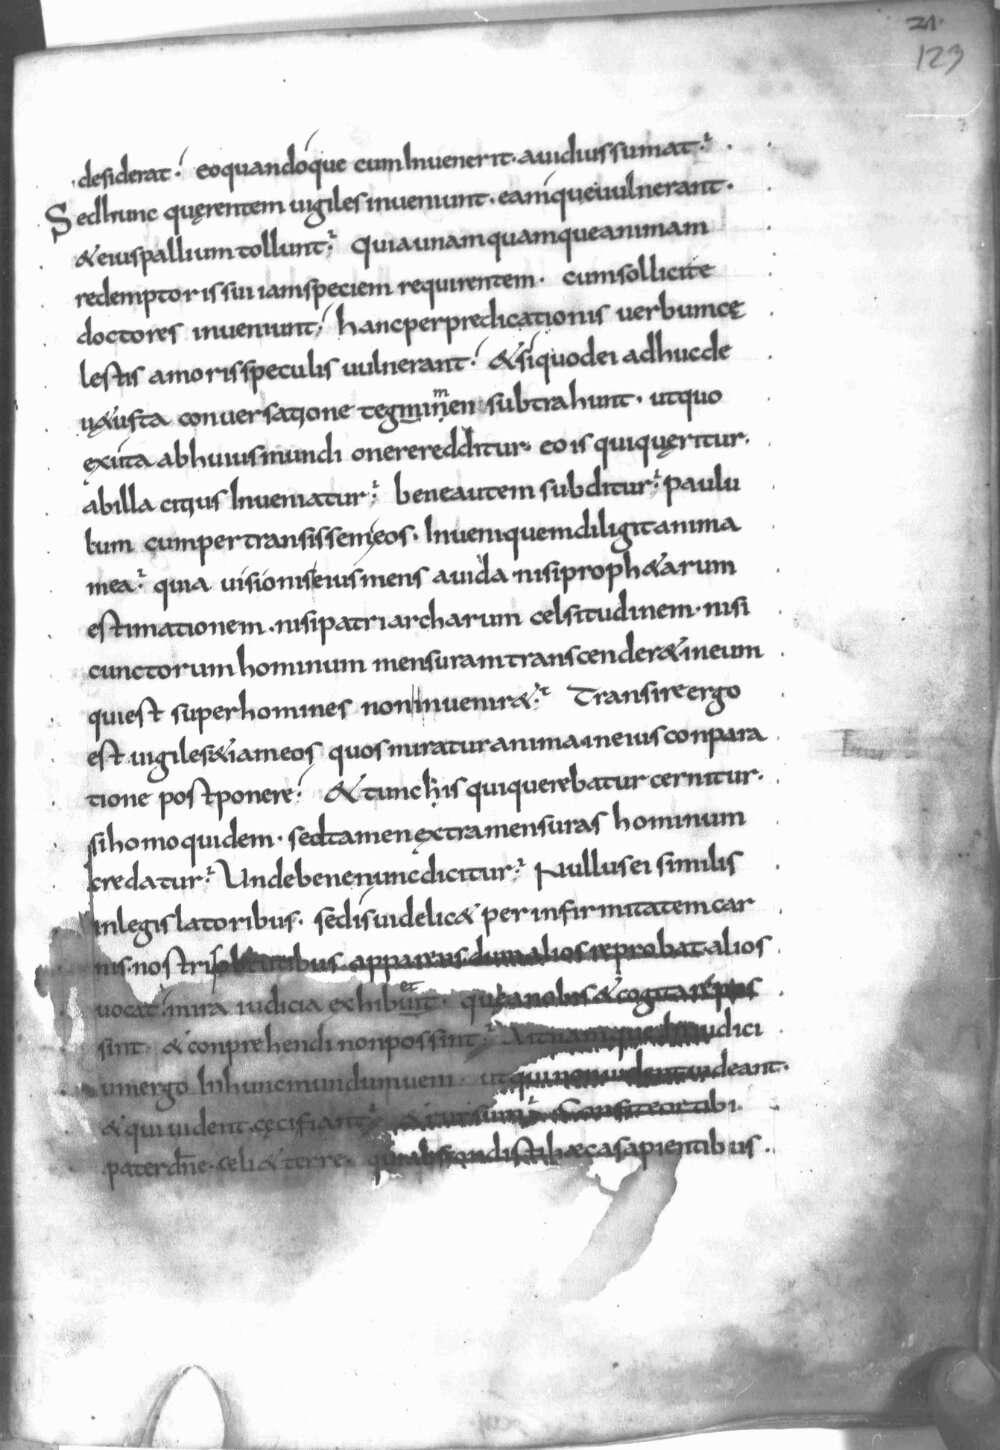 21.
123
desiderat. eo quandoque cum Inuenerit. auidius sumat.
Sed hunc quęrentem uigiles inueniunt. eamque uulnerant.
& eius pallium tollunt. quia unam quamque animam
redemptoris sui iam speciem requirentem. cum sollicite
doctores inueniunt. hanc per predicationis uerbum cę
lestis amoris speculis uulnerant. & siquod ei adhuc de
u&usta conuersatione tegminen subtrahunt. ut quo
exuta ab huius mundi onere redditur. eo is qui quęritur.
ab illa citius Inueniatur. bene autem subditur. paulu
lum cum pertransissem eos. Inueni quem diligit anima
mea. quia uisionis eius mens auida nisi proph&arum
estimationem. nisi patriarcharum celsitudinem. nisi
cunctorum hominum mensuram transcender& ineum
qui est super homines non inuenir&. Transire ergo
est uigiles &iam eos quos miratur anima in eius conpara
tione postponere. & tunc his qui querebatur cernitur.
si homo quidem. sed tamen extra mensuras hominum
credatur. Unde bene nunc dicitur. Nullus ei similis
in legislatoribus. sed is uidelic& per infirmitatem car
nis nostris obtutibus apparens. dum alios reprobat alios
uocat. mira iudicia exhibuit. que a nobis & cogitari
sint & conprehendi non possint. Ait namque In iudici
um ergo In hunc mundum ueni. ut qui non uident uideant.
& qui uident. cęci fiant. & rursum. Confiteor tibi.
pater dn̄e. celi & terre. qui abscondisti hęc a sapientibus.